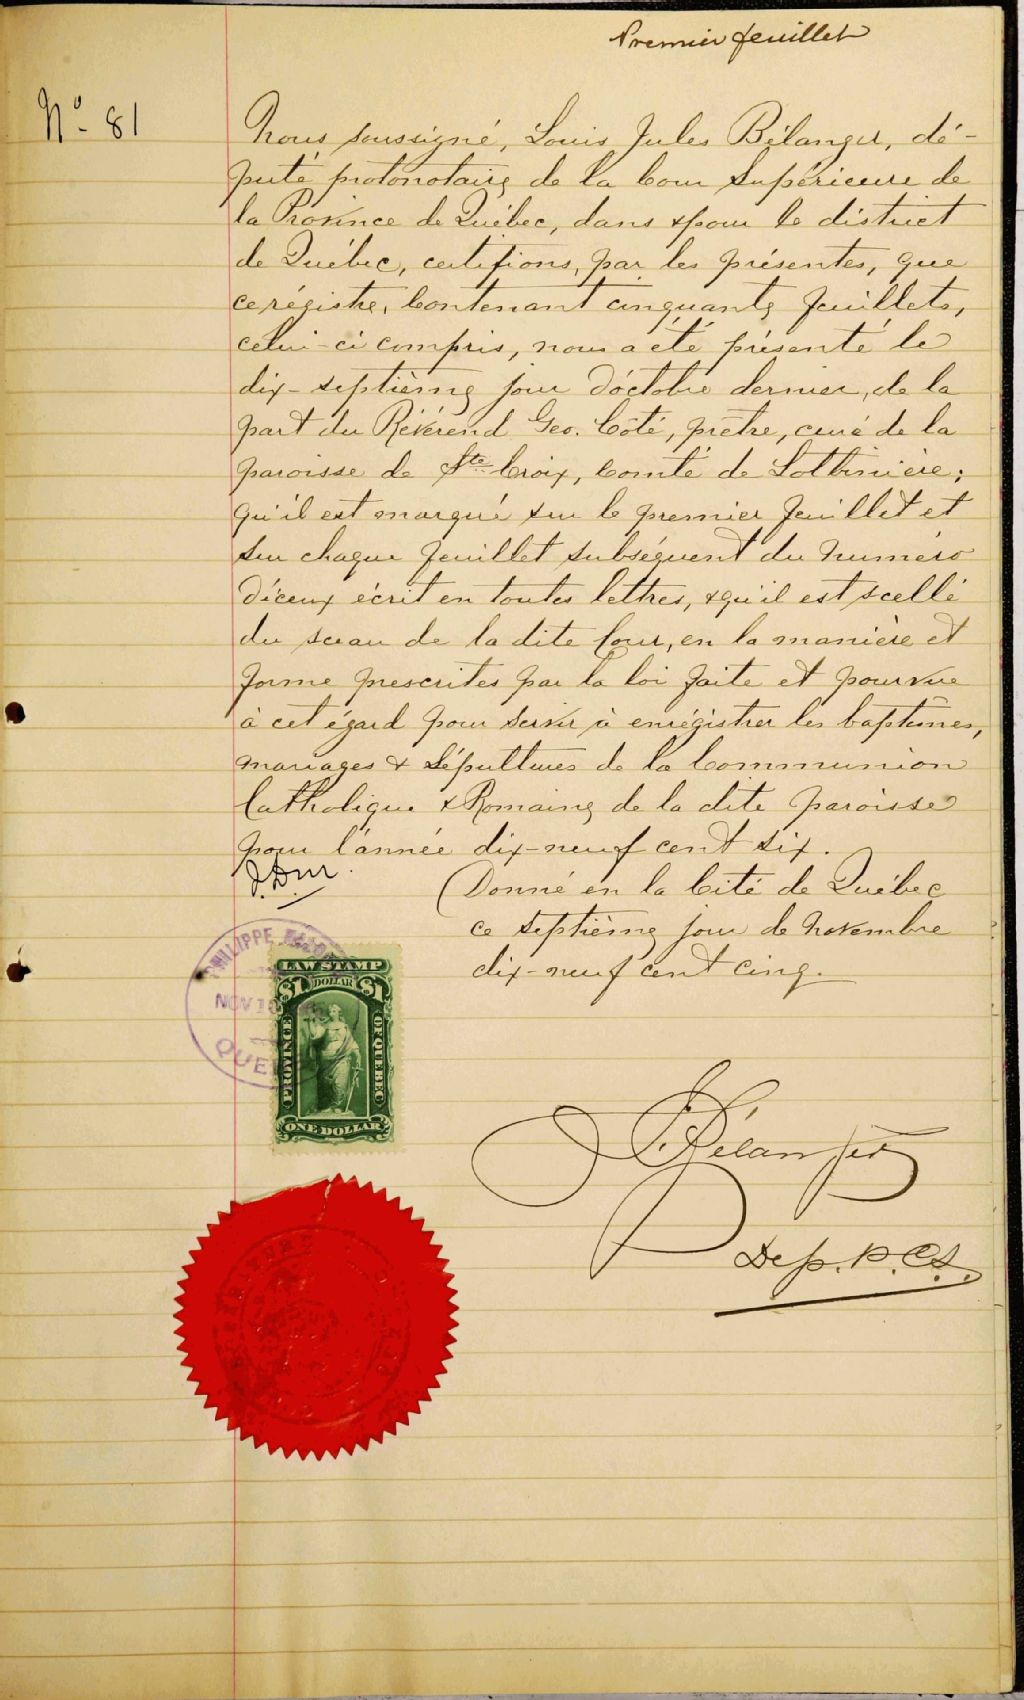 Premier feuillet
No. 81
Nous soussigné, Louis Jules Bélanger, dé-
puté protonotaire de la Cour Supérieure de
la Province de Québec, dans & pour le district
de Québec, certifions, par les présentes, que
ce régistre, Contenant cinquante feuillets,
celui-ci compris, nous a été présenté le
dix-septième jour d'octobre dernier, de la
part du Révérend Geo. Côté, prêtre, curé de la
paroisse de Ste Croix, Comté de Lotbinière;
qu'il est marqué sur le premier feuillet et
sur chaque feuillet subséquent du numéro
d'iceux écrit en toutes lettres, & qu'il est scellé
du sceau de la dite Cour, en la manière et
forme prescrites par la loi faite et pourvue
à cet égard pour servir à enrégistrer les baptêmes,
mariages & Sépultures de la Communion
Catholique & Romaine de la dite paroisse
pour l'année dix-neuf cent six.
Donné en la Cité de Québec
ce septième jour de Novembre
dix-neuf cent cinq.
PHILIPPE
NOV 10
QUE
LAW STAMP
$1 DOLLAR $1
PROVINCE OF QUEBEC
ONE DOLLAR
Bélanger
Dep. P. C.S.